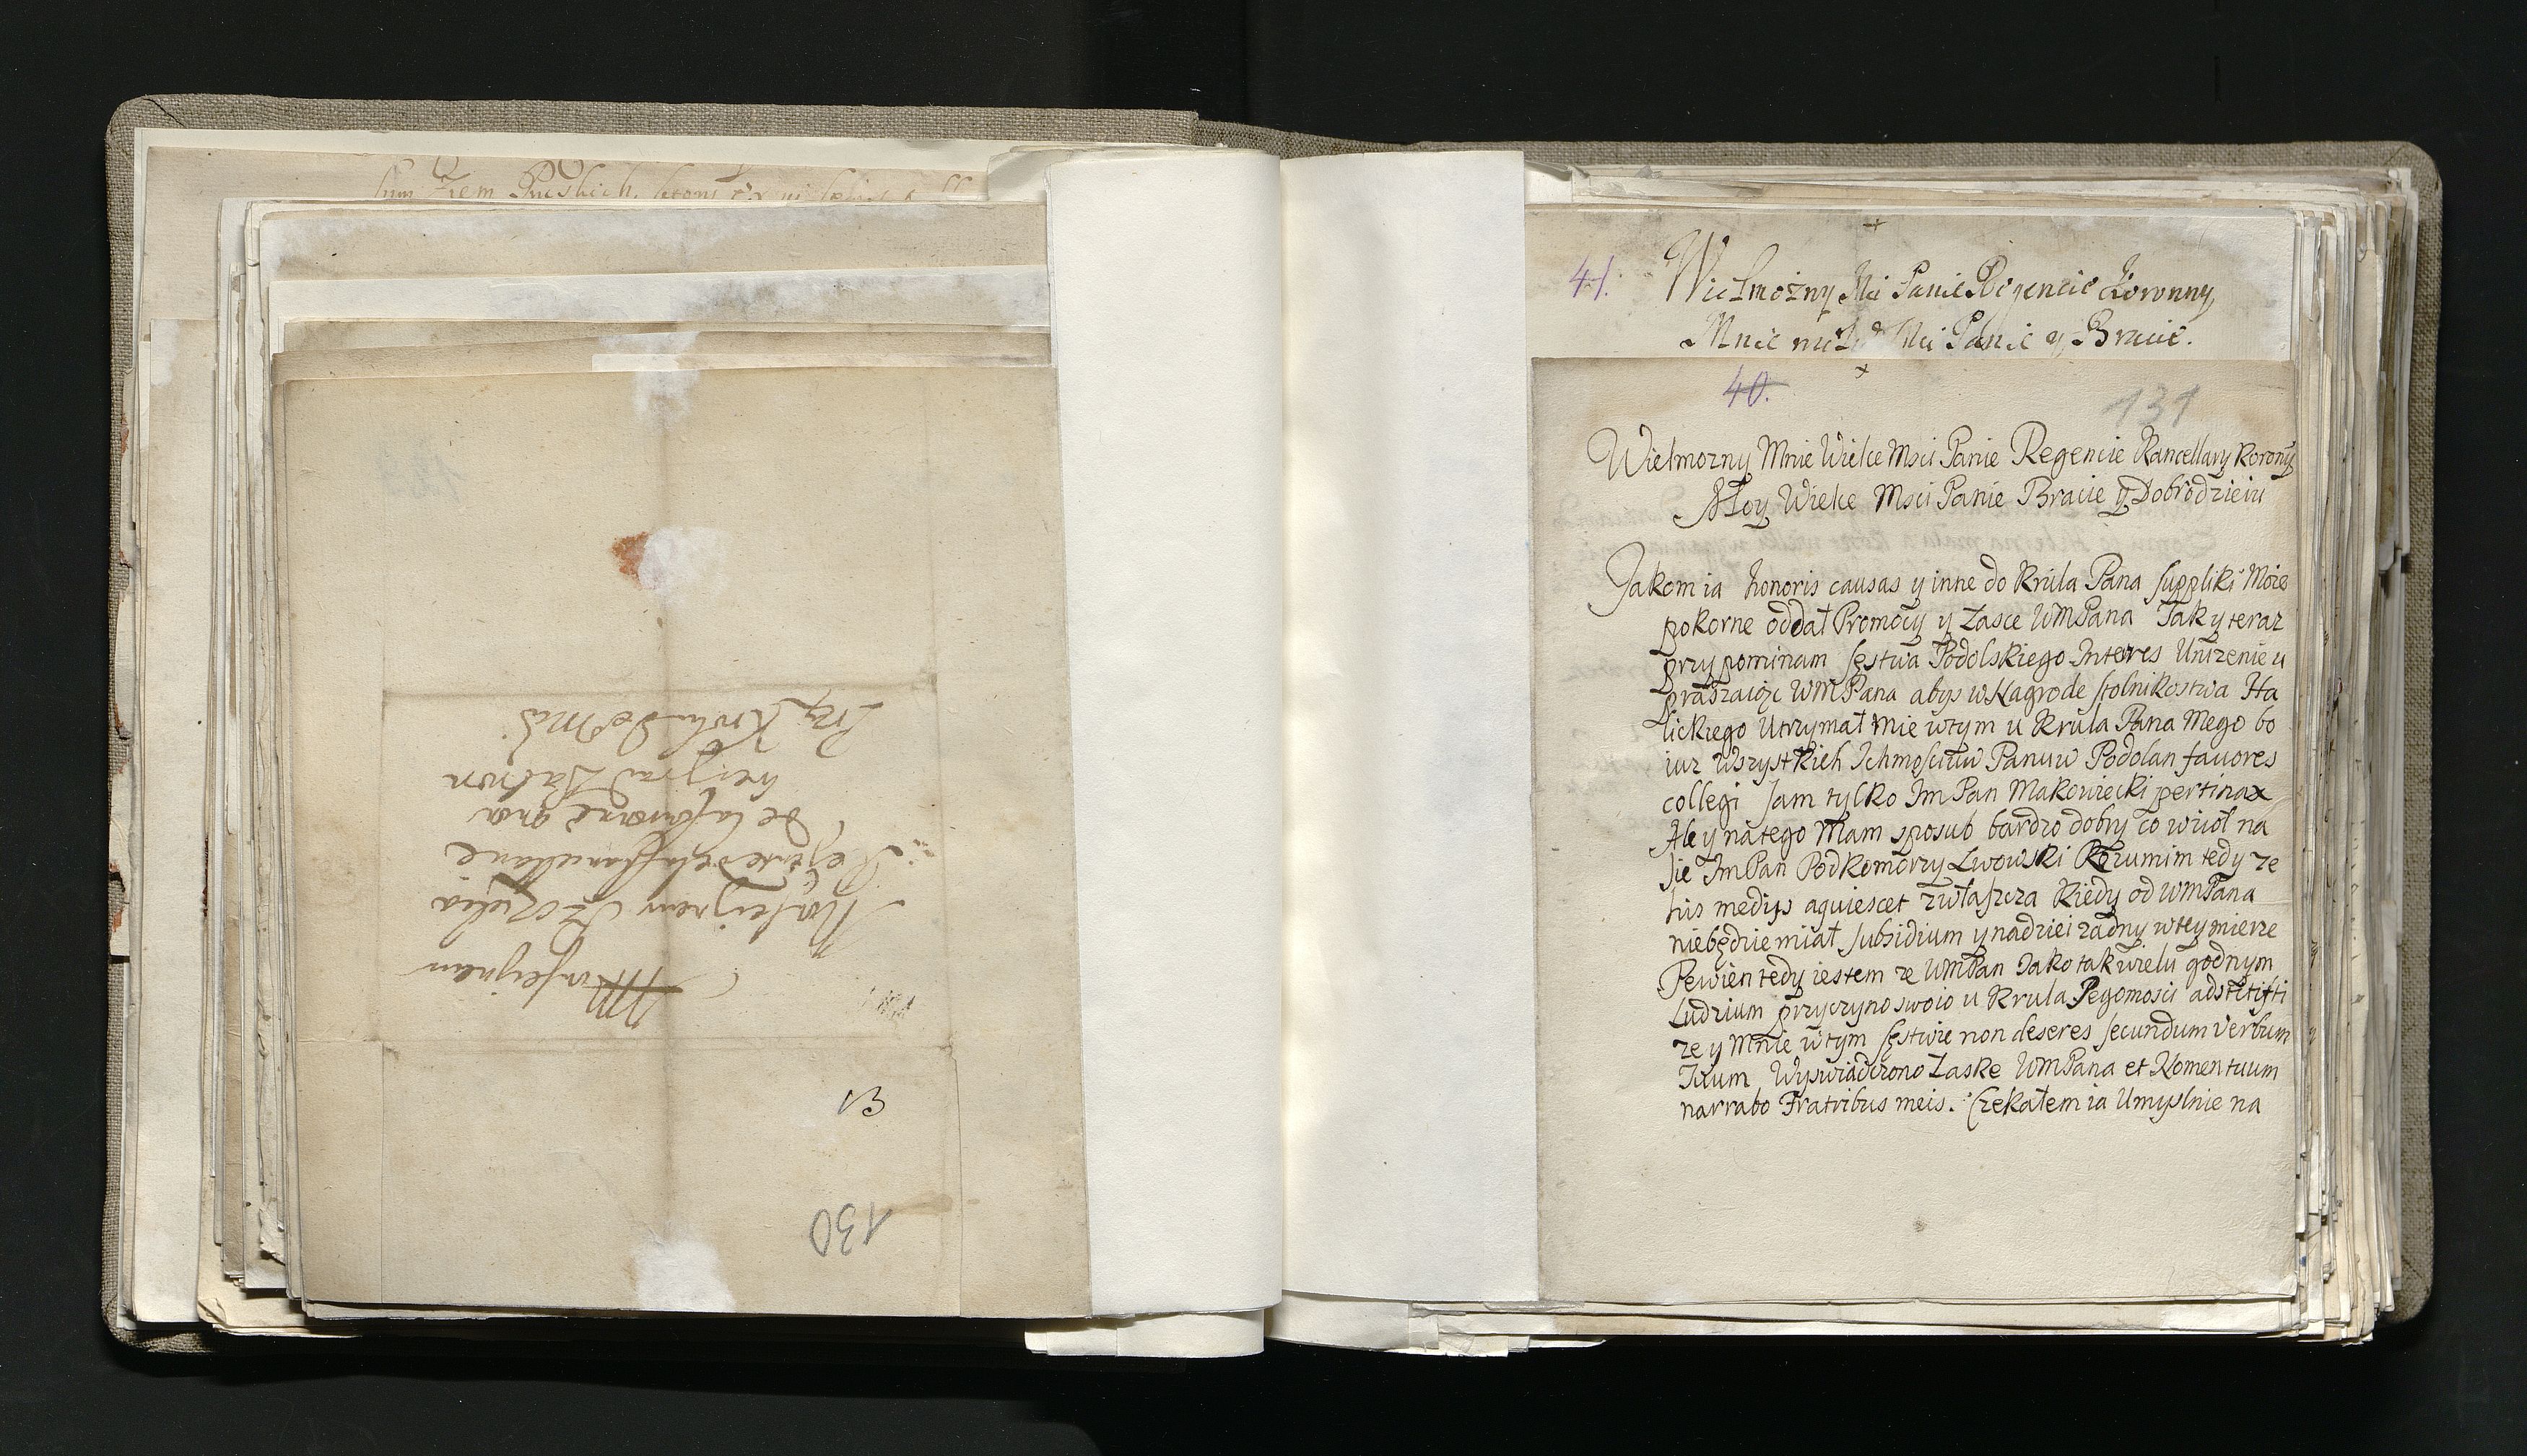 Ziem Ruskich
Monseigneur
Monseigneur Szczuka
Regente de la Chancellarie
de la Couronne gran
Przy Krolu Je° Mci
130
41.
Wielmożny Mci Panie Regencie Koronny,
Mnie Mci Panie y Bracie.
40.
131
Wielmozny Mnie Wielce Msci Panie Regencie Kancellary Korony
Moy Wielce Msci Panie Bracie y Dobrodzieiu
Jakom ia honoris causas y inne do Krula Pana suppliki Moie
pokorne oddał Promocy y Łasce WMPana Tak y teraz
przypominam sęstwa Podolskiego Interes Unizenie u
praszaiąc WMPana abys w Nagrode stolnikostwa Ha
lickiego Utrzymał Mie wtym u Krula Pana Mego bo
iuz Wszystkich Ichmosciuw Panuw Podolan favores
collegi Jam tylko Im Pan Makowiecki pertinax
Ale y natego Mam sposub bardzo dobry co wzioł na
sie ImPan Podkomorzy Lwowski Rozumim tedy ze
his medijs aquiescet zwłaszcza Kiedy od WMPana
niebędzie miał subsidium y nadziei zadny wtey mierze
Pewien tedy iestem ze WMPan Jako tak wielu godnym
Ludzium przyczyno swoio u Krula Jegomosci adstitisti
ze y Mnie wtym sęstwie non deseres secundum Verbum
Tuum Wyswiadczono Łaske WMPana et Nomen tuum
narrabo Fratribus meis. Czekałem ia Umyslnie na